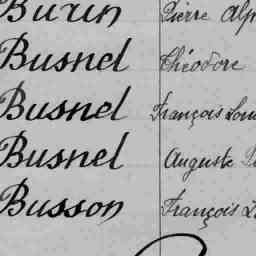 Burin Pierre
Busnel Théodore
Busnel François
Busnel Auguste
Busson François